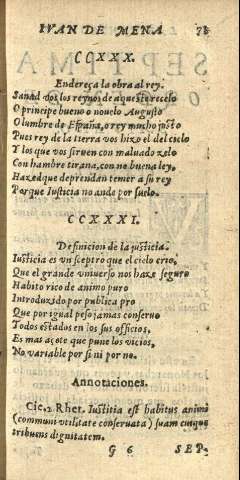 IVAN DE MENA 78
CCXXX.
Endereça la obra al rey.
Sanad vos los reynos de aqueste recelo
O principe bueno o nouelo Augusto
O lumbre de España, o rey mucho justo
Pues rey de la tierra vos hizo el del cielo
Y los que vos siruen con maluado zelo
Con hambre tirana, con no buena ley,
Hazed que deprendan temer a su rey
Porque Iusticia no ande por suelo.
CCXXXI.
Definicion de la justicia.
Iusticia es vn sceptro que el cielo crio,
Que el grande vniuerso nos haze seguro
Habito rico de animo puro
Introduzido por publica pro
Que por igual peso jamas conseruo
Todos estados en los sus officios,
Es mas açote que pune los vicios,
No variable por si ni por no.
Annotaciones.
Cic. 2. Rhet. Iustitia est habitus animi
(communi vtilitate conseruata) suam cuique
tribuens dignitatem.
G 6 SEP-